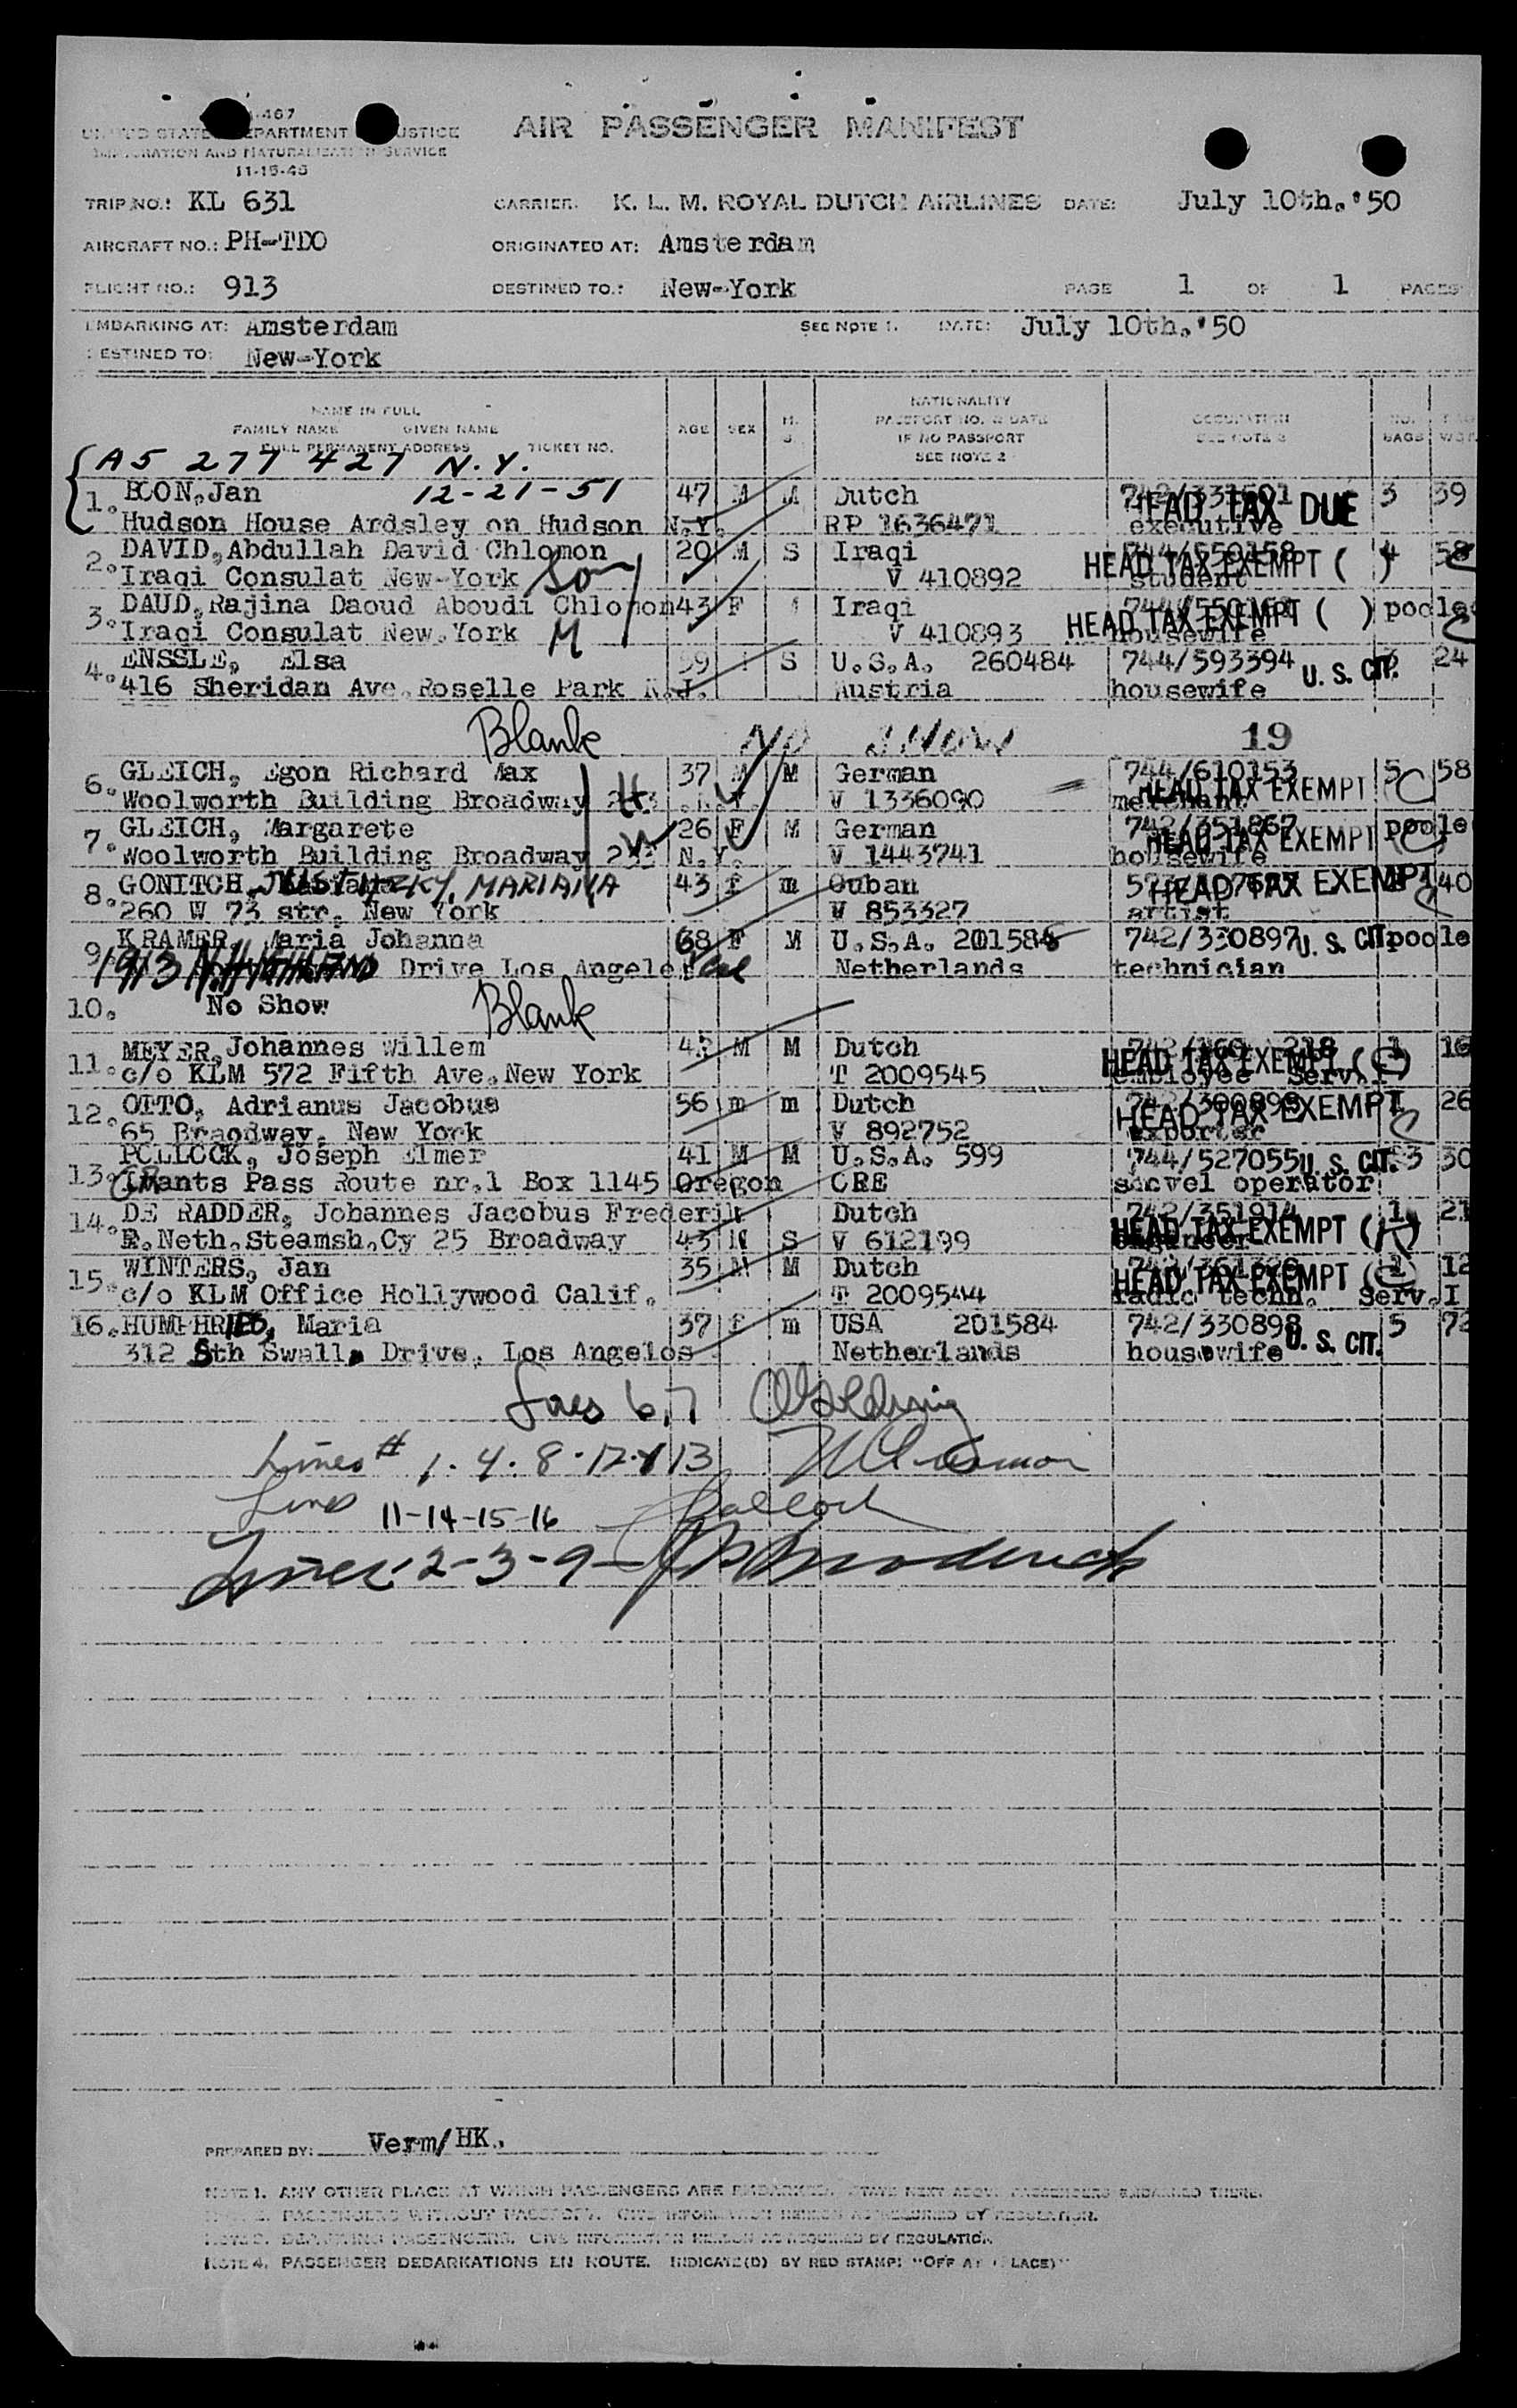 I-467
UNITED STATES DEPARTMENT OF JUSTICE
IMMIGRATION AND NATURALIZATION SERVICE
11-15-46
AIR PASSENGER MANIFEST
TRIP NO.: KL 631 CARRIER: K. L. M. ROYAL DUTCH AIRLINES DATE: July 10th.'50
AIRCRAFT NO.: PH-TDO ORIGINATED AT: Amsterdam
FLIGHT NO.: 913 DESTINED TO.: New-York PAGE 1 OF 1 PAGES
EMBARKING AT: Amsterdam SEE NOTE 1. DATE: July 10th.'50
DESTINED TO: New-York
NAME IN FULL
FAMILY NAME GIVEN NAME
FULL PERMANENT ADDRESS TICKET NO.
AGE SEX M. S.
NATIONALITY
PASSPORT NO. & DATE
IF NO PASSPORT
SEE NOTE 2
OCCUPATION
SEE NOTE 3
NO. BAGS
A5 277 427 N.Y.
1. BOON, Jan 12-21-51 47 M M Dutch HEAD TAX DUE 3 39
Hudson House Ardsley on Hudson N.Y. RP 1636471 executive
2. DAVID, Abdullah David Chlomon 20 M S Iraqi 744/550158 4 58
Iraqi Consulat New-York Son V 410892 HEAD TAX EXEMPT ( ) student
3. DAUD, Rajina Daoud Aboudi Chlomon 43 F Iraqi pooled
Iraqi Consulat New.York M V 410893 HEAD TAX EXEMPT ( ) housewife
4. ENSSLE, Elsa 59 S U.S.A. 260484 744/593394 U. S. CIT. 3 24
416 Sheridan Ave.Roselle Park N.J. Austria housewife
Blank NO SHOW 19
6. GLEICH, Egon Richard Max 37 M M German 744/610153 5 58
Woolworth Building Broadway 233 N.Y. H V 1336090 HEAD TAX EXEMPT merchant
7. GLEICH, Margarete 26 F M German 742/351867 poole
Woolworth Building Broadway 233 N.Y. W V 1443741 HEAD TAX EXEMPT housewife
8. GONITCH, MARIANA 43 f m Cuban HEAD TAX EXEMPT 40
260 W 73 str. New York V 853327 artist
9. KRAMER, Maria Johanna 68 F M U.S.A. 201585 742/330897 U. S. CIT. poole
1913 Drive Los Angeles Cal Netherlands technician
10. No Show Blank
11. MEYER, Johannes Willem 42 M M Dutch 1 16
c/o KLM 572 Fifth Ave.New York T 2009545 HEAD TAX EXEMPT (C) employee Serv.I
12. OTTO, Adrianus Jacobus 56 m m Dutch 742/300899 1 26
65 Braodway, New York V 892752 HEAD TAX EXEMPT exporter
13. POLLOCK, Joseph Elmer 41 M M U.S.A. 599 744/527055 U. S. CIT. 3 30
GRants Pass Route nr.1 Box 1145 Oregon CRE shovel operator
14. DE RADDER, Johannes Jacobus Frederik Dutch 742/351914 1 21
R.Neth.Steamsh.Cy 25 Broadway 43 M S V 612199 HEAD TAX EXEMPT engineer
15. WINTERS, Jan 35 M M Dutch 1 12
c/o KLM Office Hollywood Calif. T 2009544 HEAD TAX EXEMPT radio techn. Serv.I
16. HUMPHRIES, Maria 37 f m USA 201584 742/330898 U. S. CIT. 5 72
312 Sth Swall, Drive, Los Angelos Netherlands housewife
Lines 6,7
Lines # 1. 4. 8. 12. & 13
Lines 11-14-15-16
Lines 2-3-9-
PREPARED BY: Verm/HK.
NOTE 1. ANY OTHER PLACE AT WHICH PASSENGERS ARE EMBARKED. STATE NEXT ABOVE PASSENGERS EMBARKED THERE.
NOTE 2. PASSENGERS WITHOUT PASSPORT. GIVE INFORMATION HEREON AS REQUIRED BY REGULATION.
NOTE 3. DEPARTING PASSENGERS. GIVE INFORMATION HEREON AS REQUIRED BY REGULATION.
NOTE 4. PASSENGER DEBARKATIONS EN ROUTE. INDICATE(D) BY RED STAMP: "OFF AT (PLACE)"